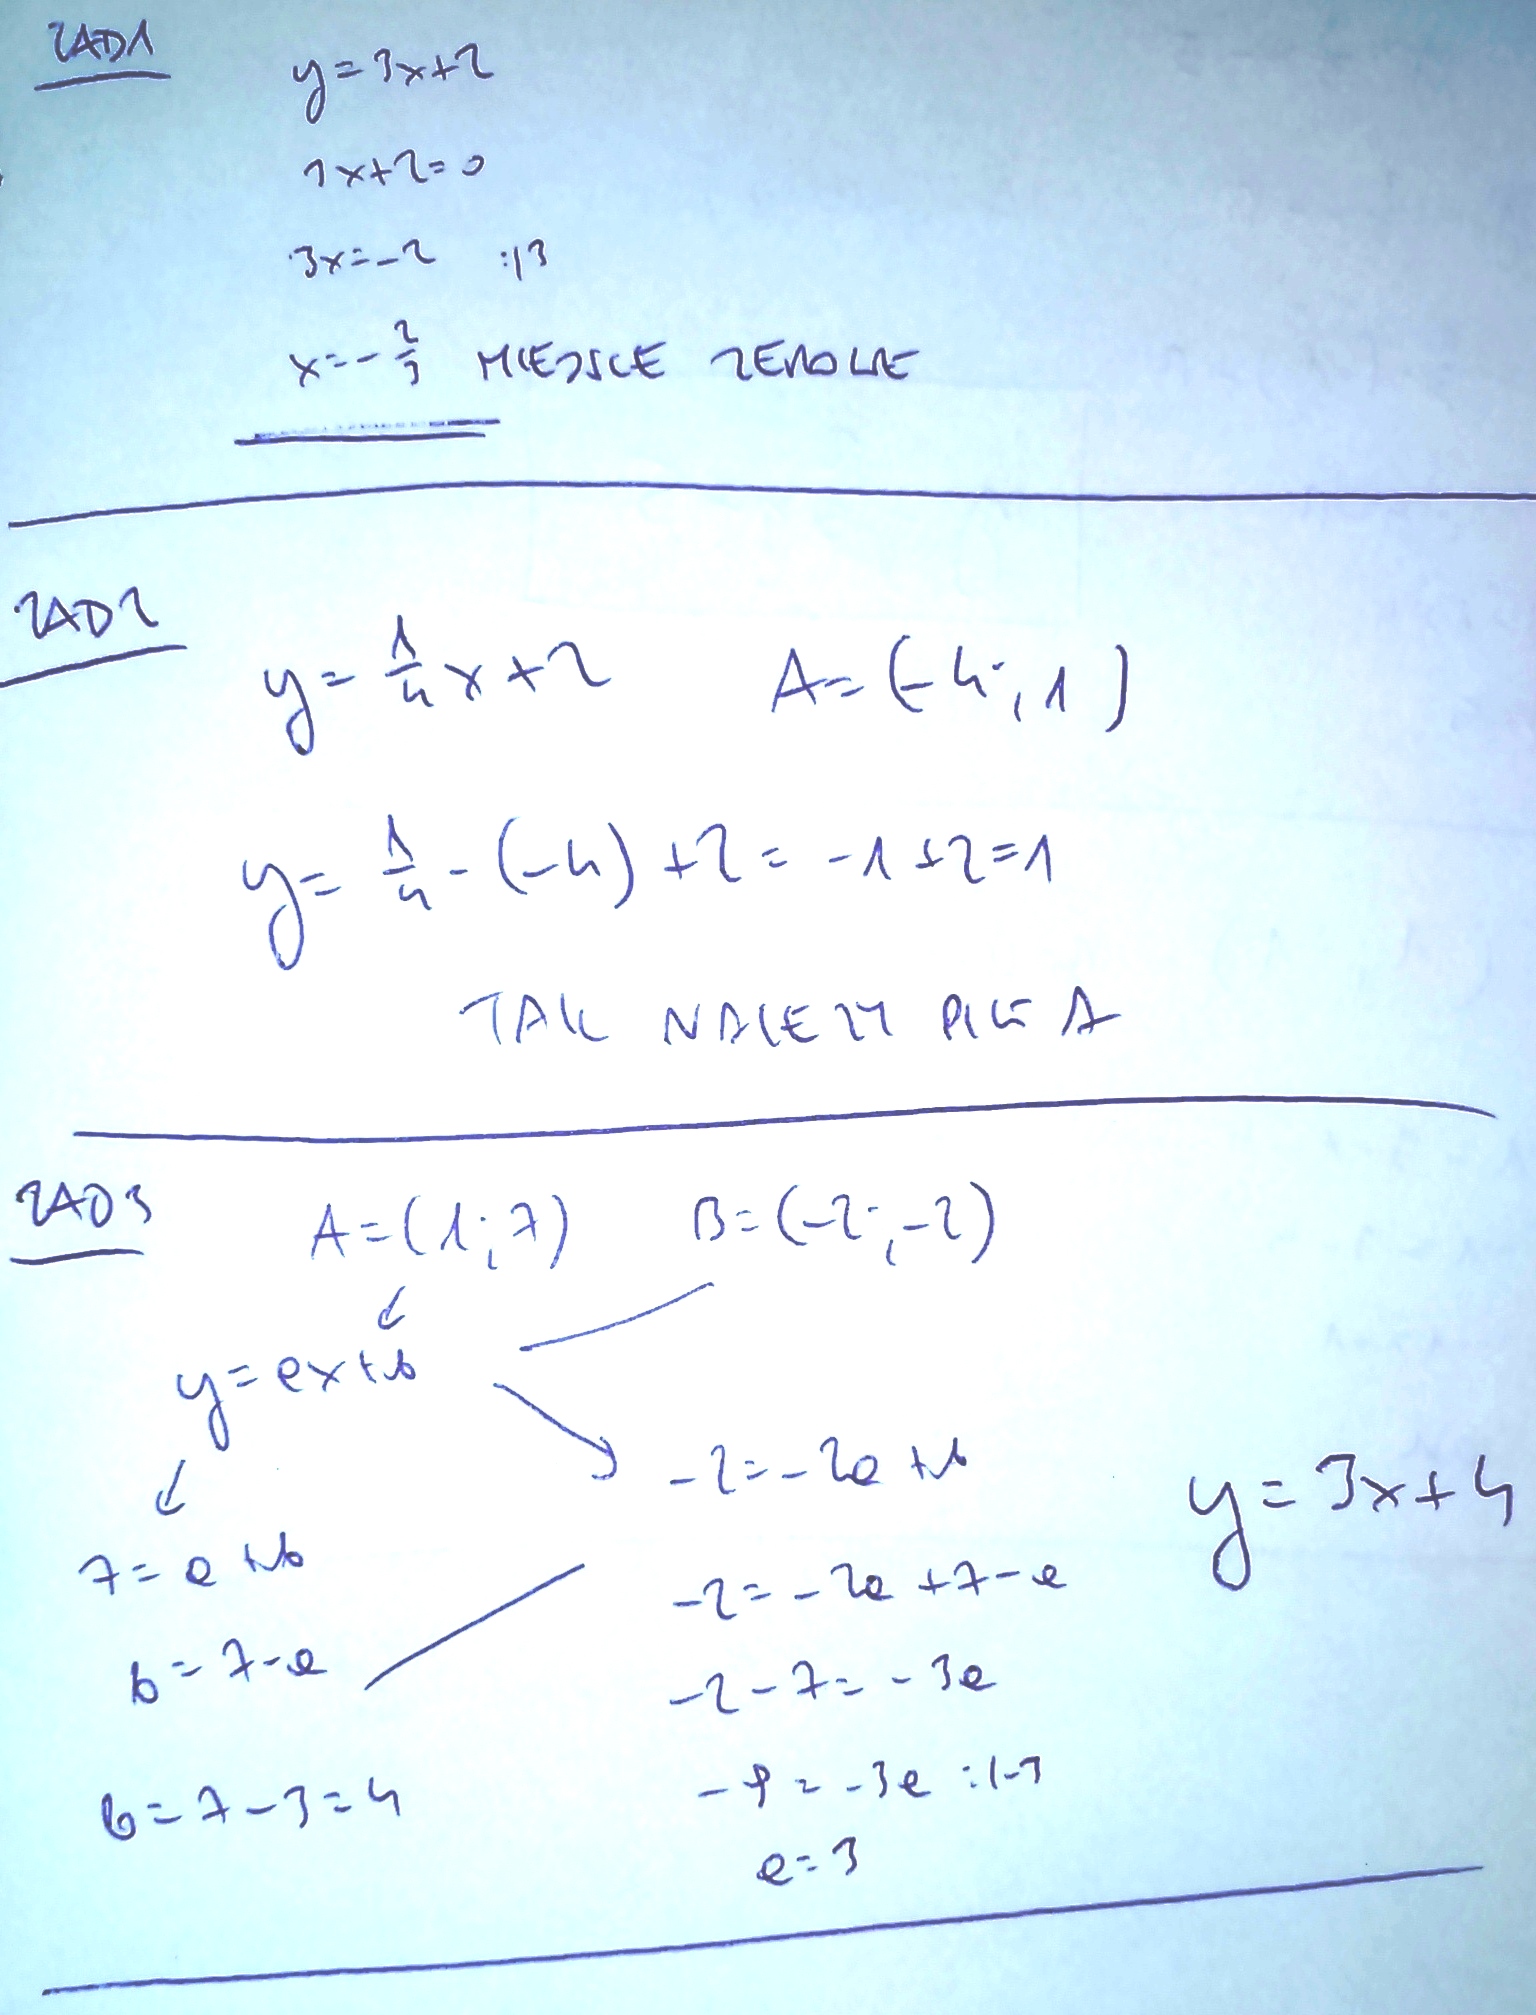 ZAD1
y=3x+2
3x+2=0
3x=-2 :/3
x=-2/3 MIEJSCE ZEROWE
ZAD2
y=1/4x+2 A=(-4;1)
y=1/4-(-4)+2=-1+2=1
TAK NALEZY PKT A
ZAD3
A=(1;7) B=(-2;-2)
y=ax+b
-2=-2a+b
7=a+b
y=3x+4
-2=-2a+7-a
b=7-a
-2-7=-3a
-9=-3a :/-3
b=7-3=4
a=3